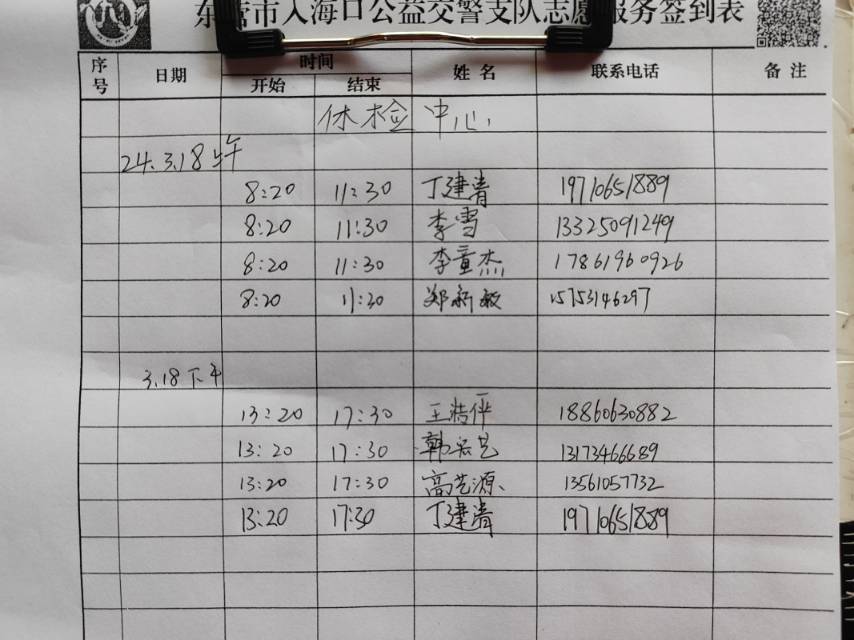 东营市入海口公益交警支队志愿服务签到表
序号 日期 时间 姓名 联系电话 备注
开始 结束
体检中心
24.3.18上午
8:20 11:30 丁建青 19710651889
8:20 11:30 李雪 13325091249
8:20 11:30 李童杰 17861960926
8:20 11:30 郑新敏 15753146297
3.18下午
13:20 17:30 王浩伊 18860630882
13:20 17:30 韩 13173466689
13:20 17:30 高艺源 13561057732
13:20 17:30 丁建青 19710651889